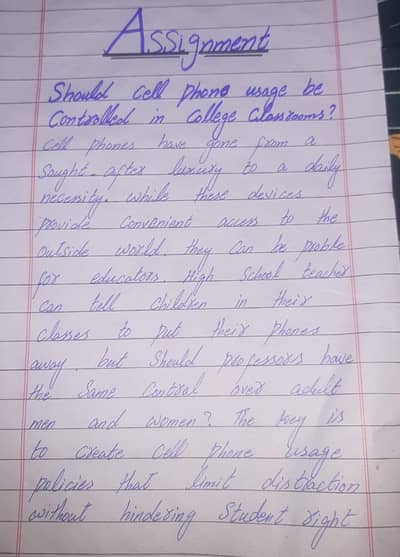 Assignment
Should cell phone usage be
Controlled in College Classrooms?
Cell phones have gone from a
Sought-after luxury to a daily
necessity. While these devices
provide convenient access to the
outside world. they can be proble
for educators. High School teacher
can tell children in their
classes to put their phones
away, but Should professors have
the Same Control over adult
men and women? The key is
to create Cell phone usage
policies that limit distraction
without hindering Student right